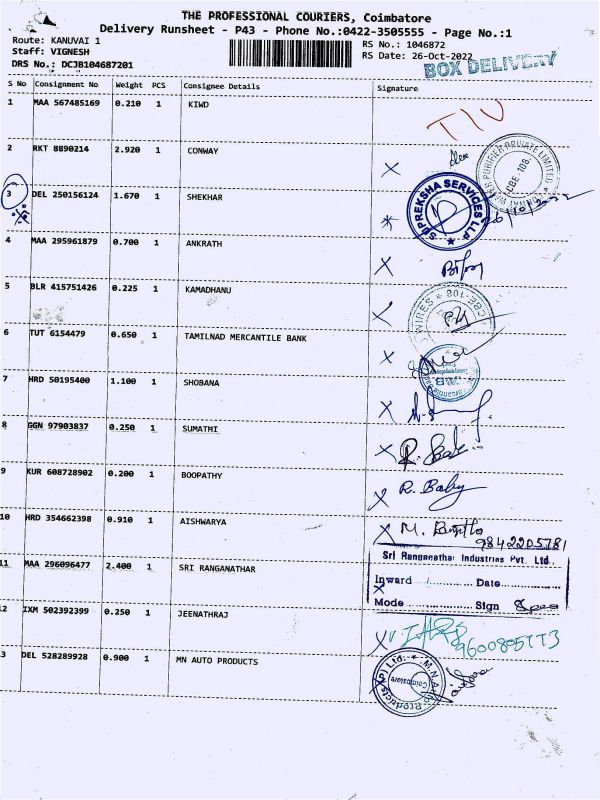 THE PROFESSIONAL COURIERS, Coimbatore
Delivery Runsheet - P43 - Phone No.:0422-3505555 - Page No.:1
Route: KANUVAI 1
Staff: VIGNESH
DRS No.: DCJB104687201
RS No.: 1046872
RS Date: 26-Oct-2022
BOX DELIVERY
S No Consignment No Weight PCS Consignee Details Signature
1 MAA 567485169 0.210 1 KIWD
2 RKT 8890214 2.920 1 CONWAY
WATER PURIFIER PRIVATE LIMITED
CBE-108.
3 DEL 250156124 1.670 1 SHEKHAR
SUPREKSHA SERVICES LLP
4 MAA 295961879 0.700 1 ANKRATH
5 BLR 415751426 0.225 1 KAMADHANU
WIRES ★ CBE-108
6 TUT 6154479 0.650 1 TAMILNAD MERCANTILE BANK
7 HRD 50195400 1.100 1 SHOBANA
8 GGN 97903837 0.250 1 SUMATHI
9 KUR 608728902 0.200 1 BOOPATHY
R. Baby
10 HRD 354662398 0.910 1 AISHWARYA
9842205781
11 MAA 296096477 2.400 1 SRI RANGANATHAR
Sri Ranganathar Industries Pvt. Ltd.,
Inward Date
Mode Sign
12 IXM 502392399 0.250 1 JEENATHRAJ
9600805773
3 DEL 528289928 0.900 1 MN AUTO PRODUCTS
M.N. Auto Products (P) Ltd.
Coimbatore